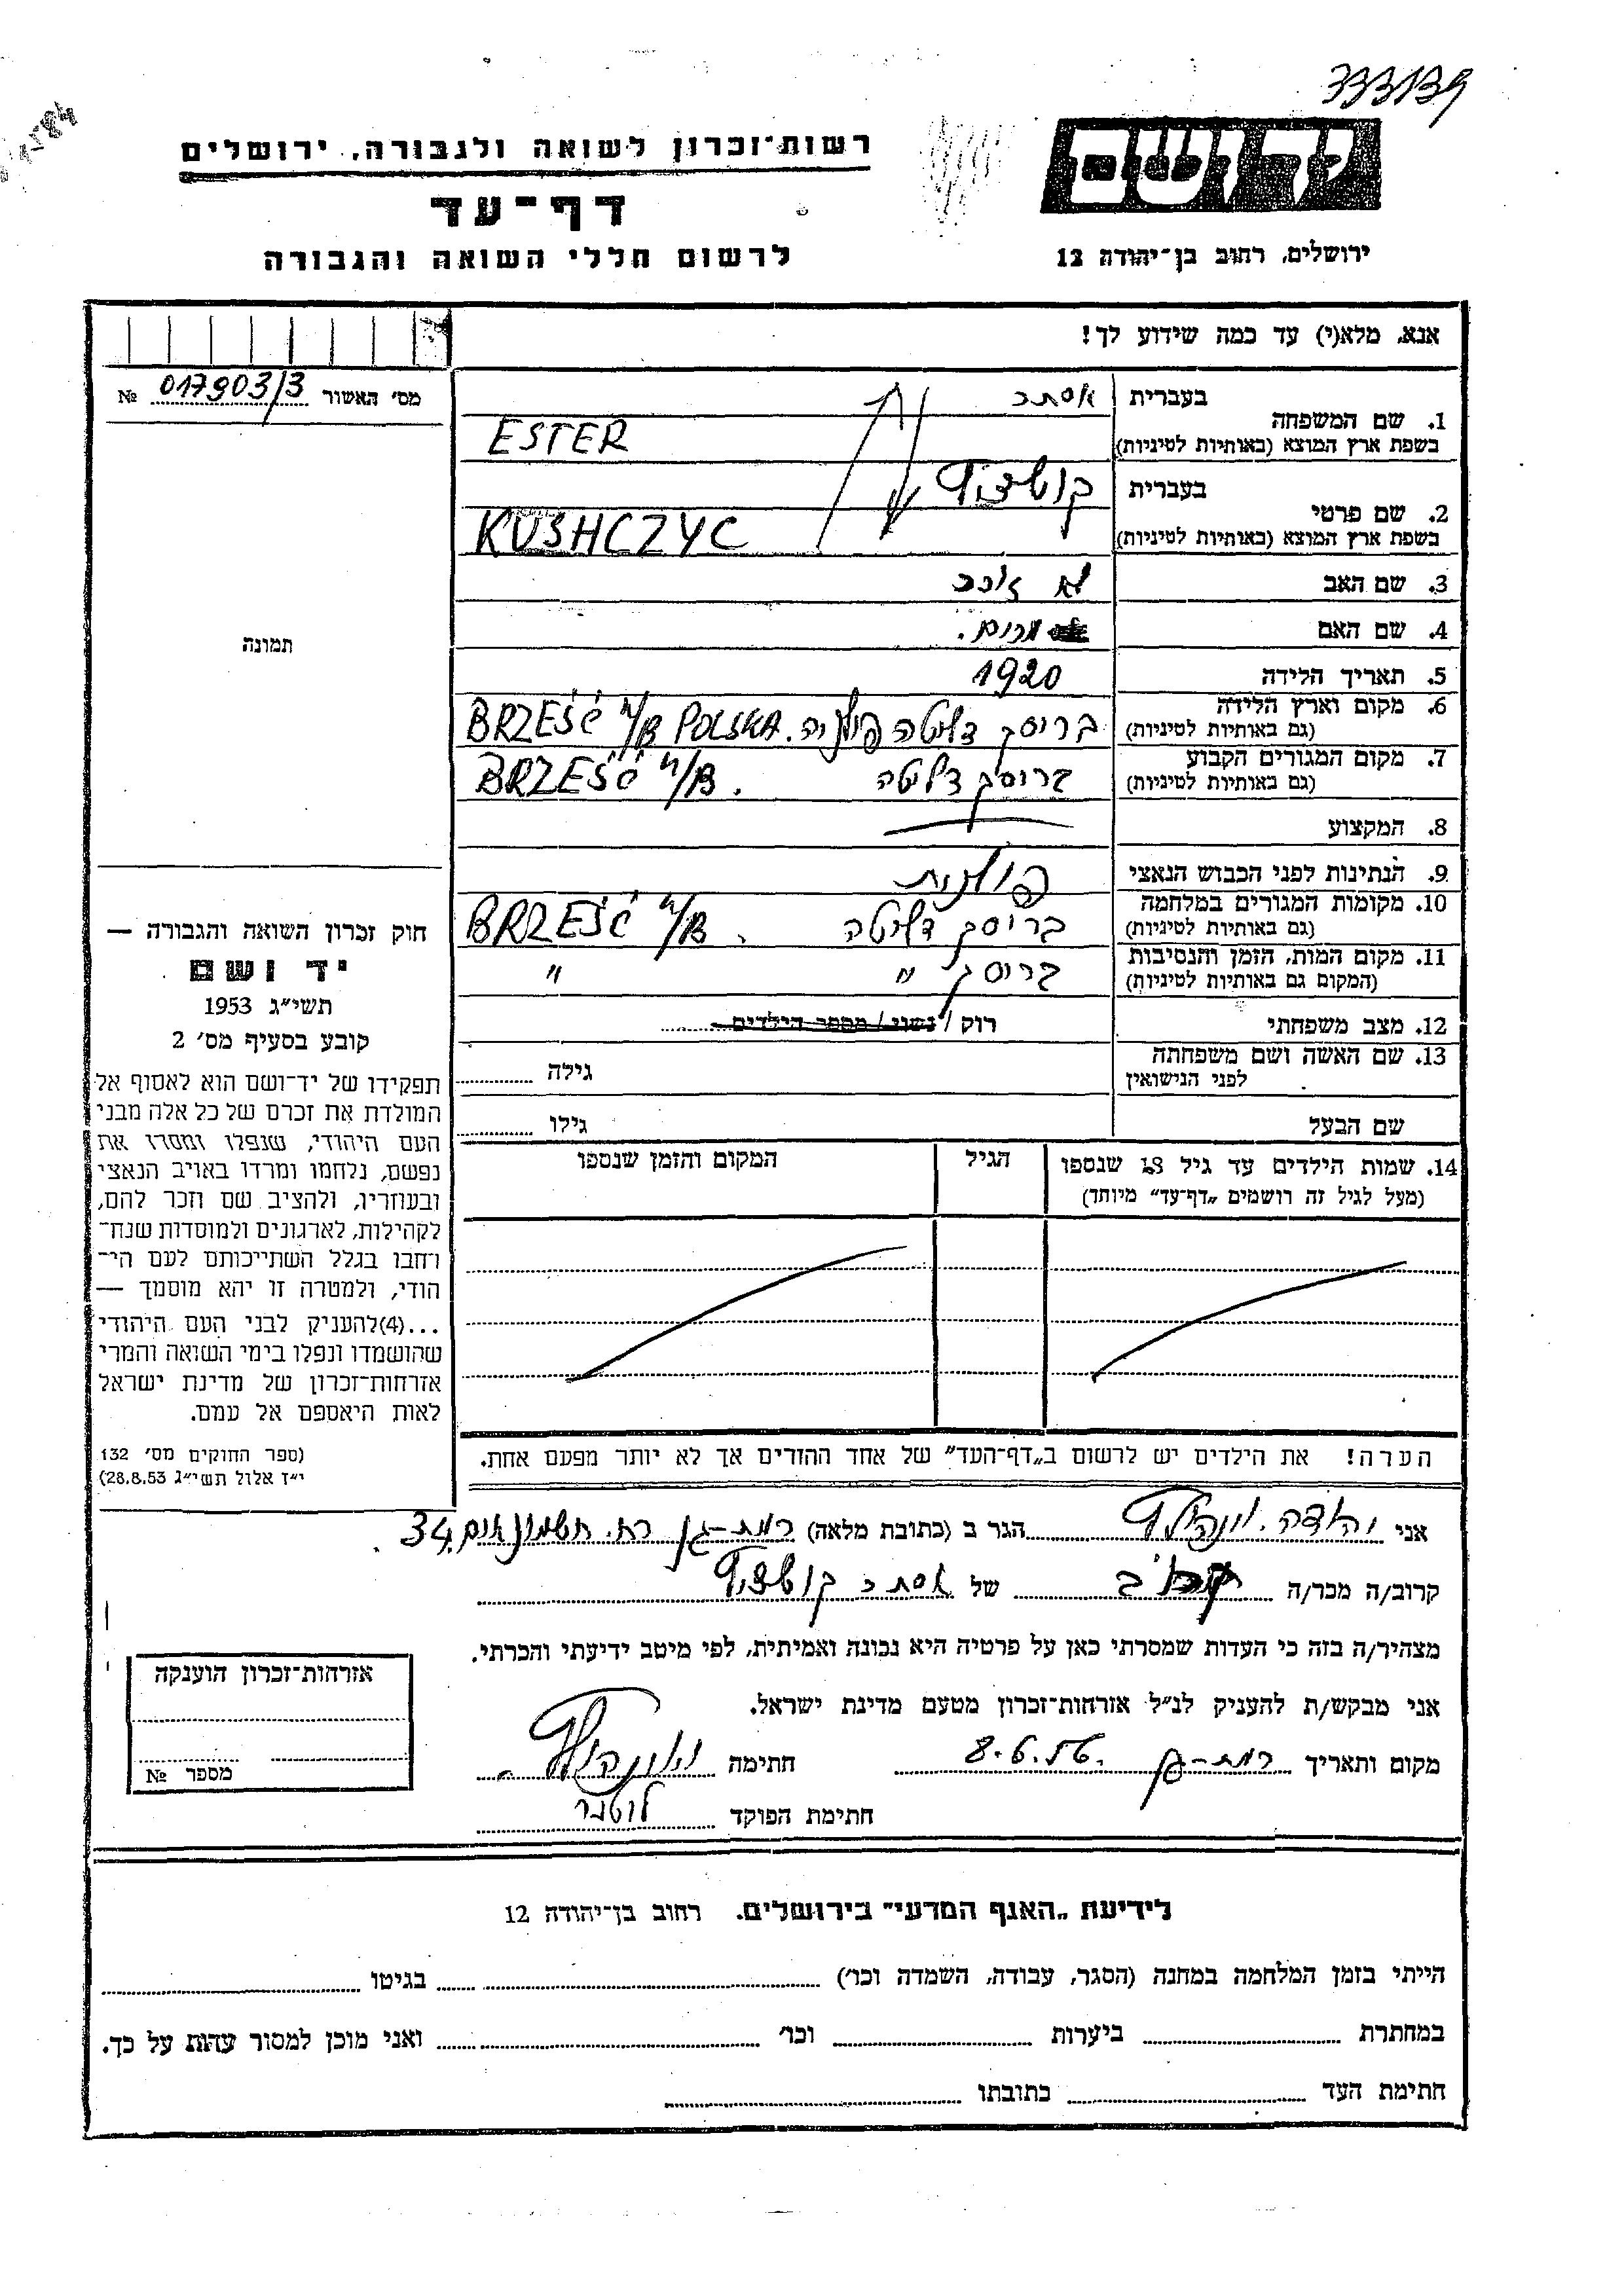 333139
רשות־זכרון לשואה ולגבורה, ירושלים
יד ושם
דף־עד
לרשום חללי השואה והגבורה
ירושלים, רחוב בן־יהודה 12
אנא, מלא(י) עד כמה שידוע לך!
מס׳ האשור 017903/3 №
1. שם המשפחה
בעברית אסתר
בשפת ארץ המוצא (באותיות לטיניות) ESTER
2. שם פרטי
בעברית קושציץ
בשפת ארץ המוצא (באותיות לטיניות) KUSHCZYC
3. שם האב לא זוכר
4. שם האם מרים.
5. תאריך הלידה 1920
6. מקום וארץ הלידה (גם באותיות לטיניות) בריסק דליטה פולניה. BRZEŚĆ n/B POLSKA
7. מקום המגורים הקבוע (גם באותיות לטיניות) בריסק דליטה BRZEŚĆ n/B.
8. המקצוע
9. הנתינות לפני הכבוש הנאצי פולנית
10. מקומות המגורים במלחמה (גם באותיות לטיניות) בריסק דליטה BRZEŚĆ n/B.
11. מקום המות, הזמן והנסיבות (המקום גם באותיות לטיניות) בריסק " "
12. מצב משפחתי רוק / נשוי / מספר הילדים
13. שם האשה ושם משפחתה לפני הנישואין גילה
שם הבעל גילו
14. שמות הילדים עד גיל 18 שנספו (מעל לגיל זה רושמים „דף־עד” מיוחד)
הגיל
המקום והזמן שנספו
הערה! את הילדים יש לרשום ב„דף־העד” של אחד ההורים אך לא יותר מפעם אחת.
תמונה
חוק זכרון השואה והגבורה —
יד ושם
תשי״ג 1953
קובע בסעיף מס׳ 2
תפקידו של יד־ושם הוא לאסוף אל
המולדת את זכרם של כל אלה מבני
העם היהודי, שנפלו ומסרו את
נפשם, נלחמו ומרדו באויב הנאצי
ובעוזריו, ולהציב שם וזכר להם,
לקהילות, לארגונים ולמוסדות שנח־
רחבו בגלל השתייכותם לעם הי־
הודי, ולמטרה זו יהא מוסמך —
...(4)להעניק לבני העם היהודי
שהושמדו ונפלו בימי השואה והמרי
אזרחות־זכרון של מדינת ישראל
לאות היאספם אל עמם.
(ספר החוקים מס׳ 132
י״ז אלול תשי״ג 28.8.53)
אני יהודה הגר ב (כתובת מלאה) רמת-גן רח. חשמונאים 34.
קרוב/ה מכר/ה קרוב של אסתר קושציץ
מצהיר/ה בזה כי העדות שמסרתי כאן על פרטיה היא נכונה ואמיתית, לפי מיטב ידיעתי והכרתי.
אני מבקש/ת להעניק לנ״ל אזרחות־זכרון מטעם מדינת ישראל.
מקום ותאריך רמת-גן 8.6.56. חתימה
חתימת הפוקד
אזרחות־זכרון הוענקה
מספר №
לידיעת „האגף המדעי” בירושלים. רחוב בן־יהודה 12
הייתי בזמן המלחמה במחנה (הסגר, עבודה, השמדה וכו׳) בגיטו
במחתרת ביערות וכו׳ ואני מוכן למסור עדות על כך.
חתימת העד כתובתו